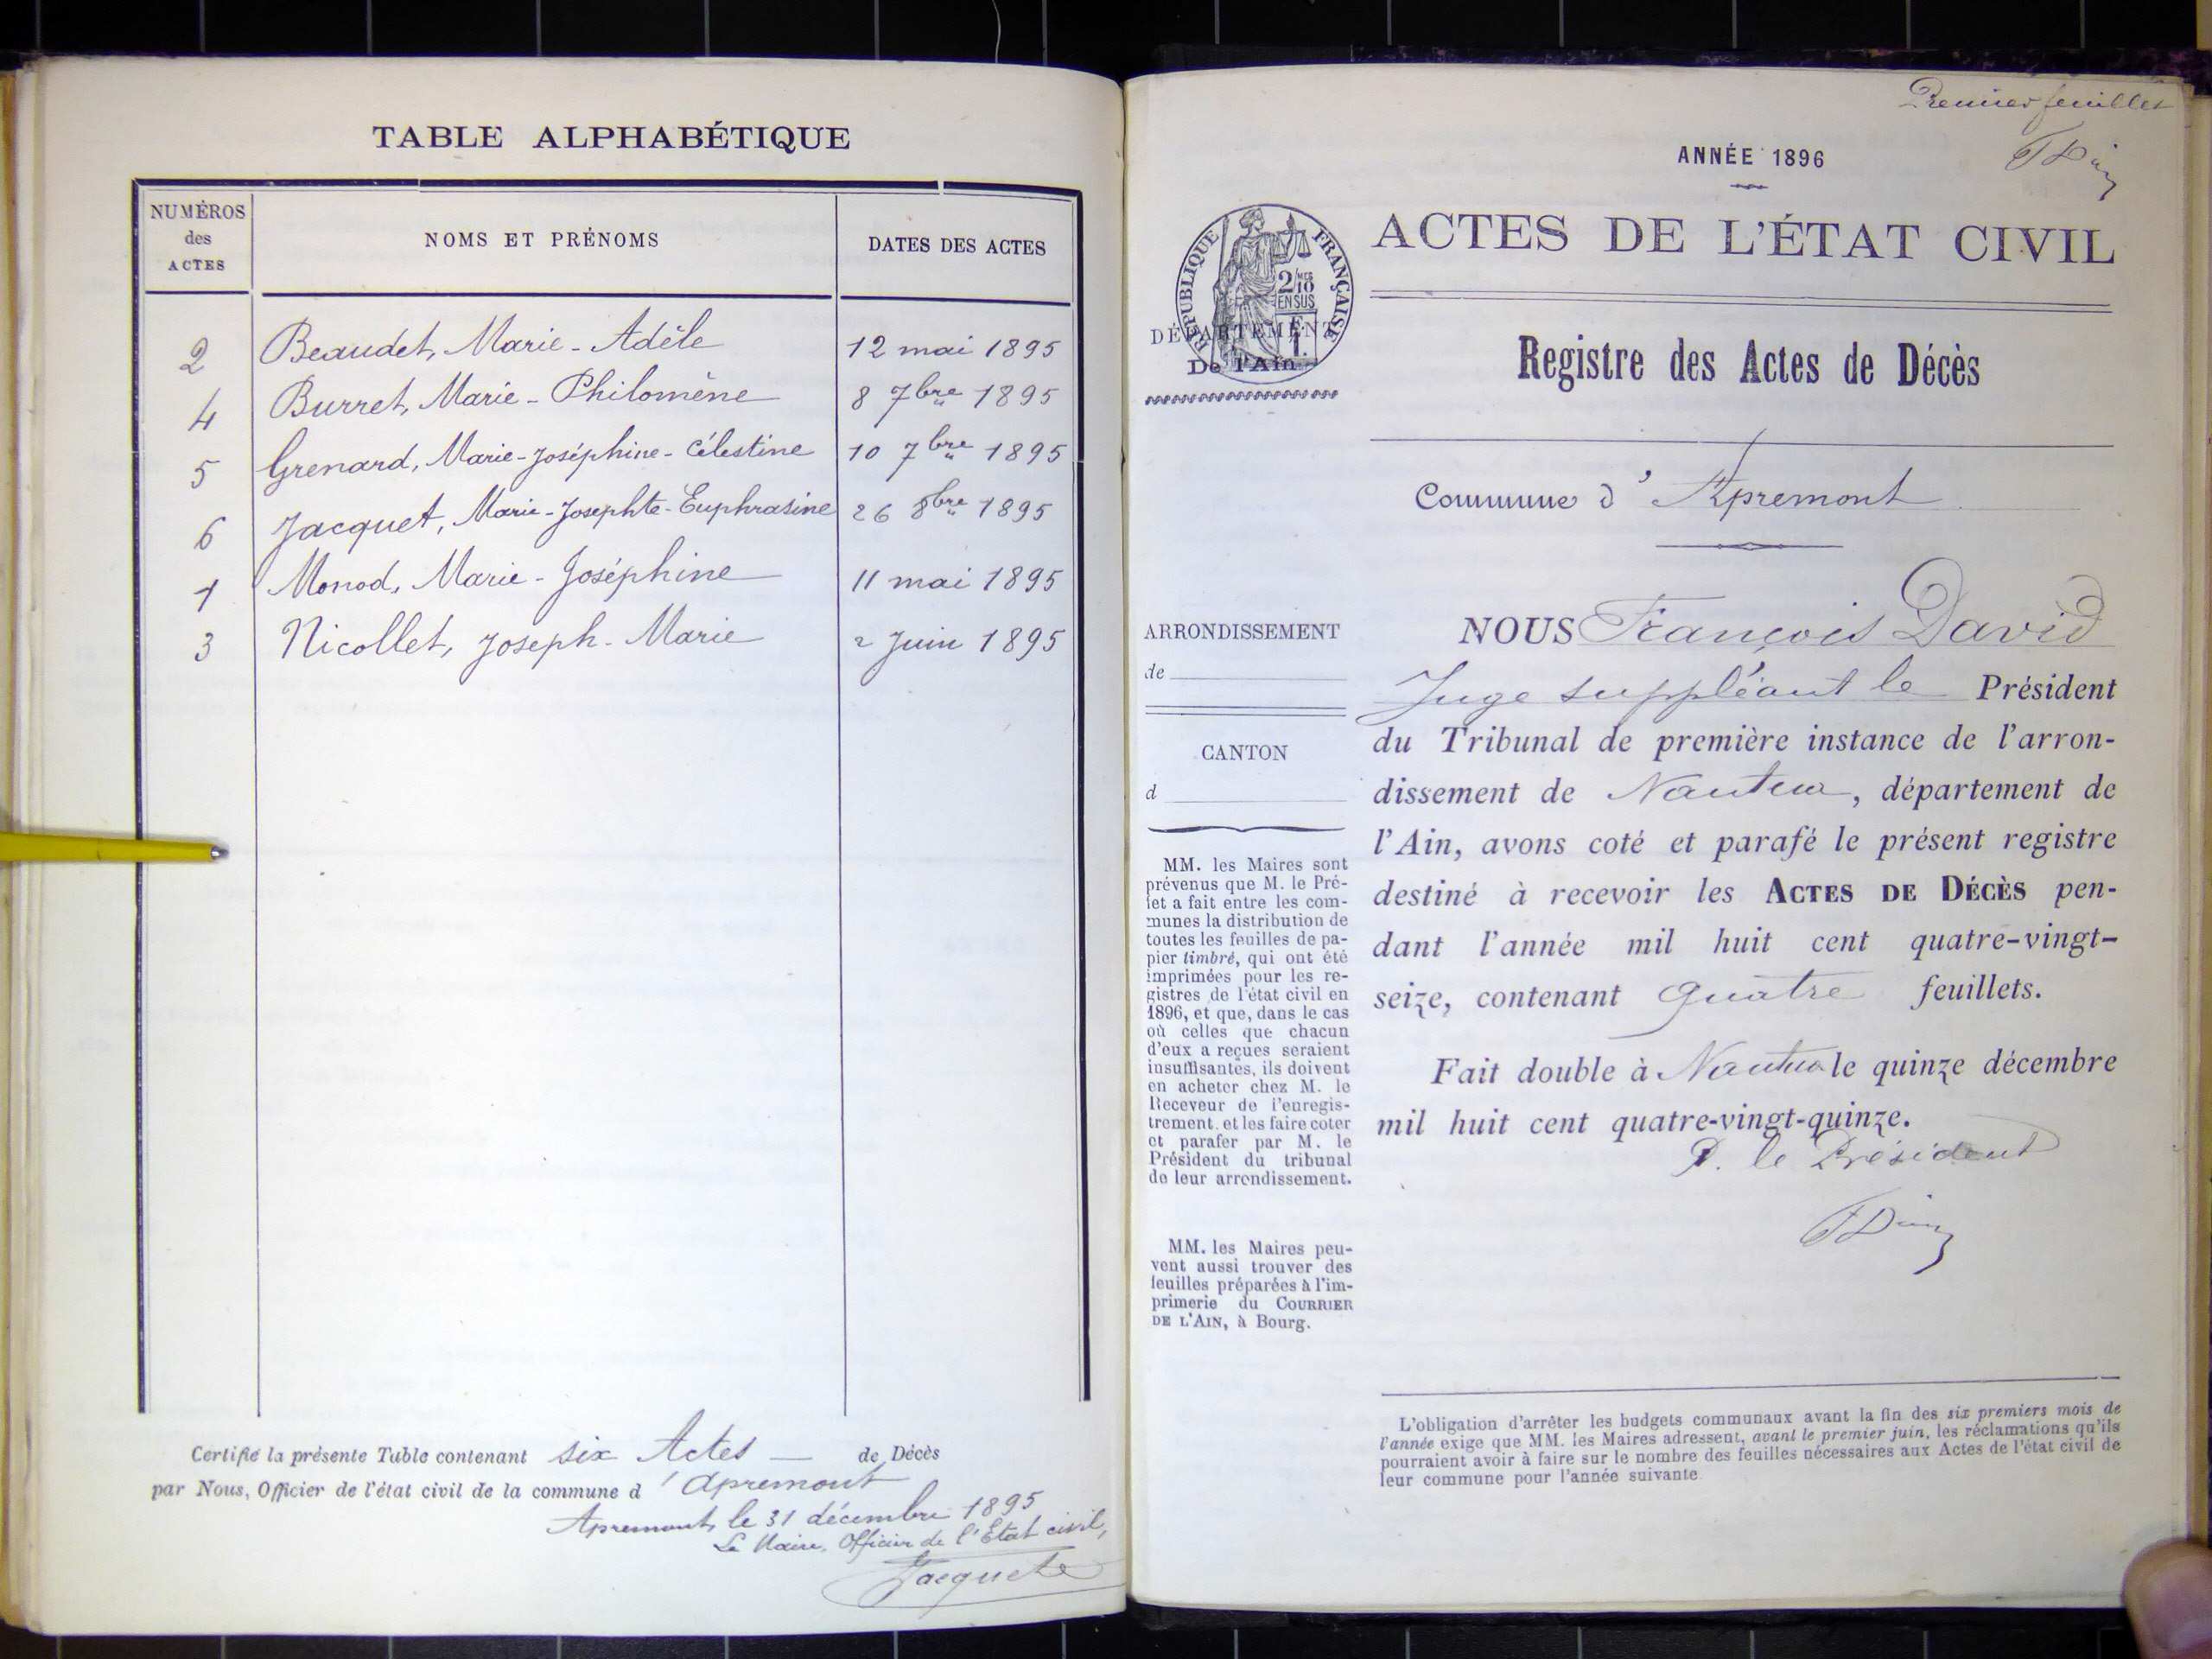 TABLE ALPHABÉTIQUE
NUMÉROS
des
ACTES
NOMS ET PRÉNOMS
DATES DES ACTES
2 Beaudet, Marie-Adèle 12 mai 1895
4 Burret, Marie-Philomène 8 7bre 1895
5 Grenard, Marie-Joséphine-Célestine 10 7bre 1895
6 Jacquet, Marie-Josephte-Euphrasine 26 8bre 1895
1 Monod, Marie-Joséphine 11 mai 1895
3 Nicollet, Joseph-Marie 2 Juin 1895
Certifié la présente Table contenant six Actes — de Décès
par Nous, Officier de l'état civil de la commune d'Apremont
Apremont, le 31 décembre 1895
Le Maire, Officier de l'Etat civil,
Premier feuillet
ANNÉE 1896
RÉPUBLIQUE FRANÇAISE
2/10
EN SUS
ACTES DE L'ÉTAT CIVIL
DÉPARTEMENT
De l'Ain
Registre des Actes de Décès
Commune d'Apremont
ARRONDISSEMENT
de
CANTON
d
MM. les Maires sont
prévenus que M. le Pré-
fet a fait entre les com-
munes la distribution de
toutes les feuilles de pa-
pier timbré, qui ont été
imprimées pour les re-
gistres de l'état civil en
1896, et que, dans le cas
où celles que chacun
d'eux a reçues seraient
insuffisantes, ils doivent
en acheter chez M. le
Receveur de l'enregis-
trement, et les faire coter
et parafer par M. le
Président du tribunal
de leur arrondissement.
MM. les Maires peu-
vent aussi trouver des
feuilles préparées à l'im-
primerie du COURRIER
DE L'AIN, à Bourg.
NOUS François David
Juge suppléant le Président
du Tribunal de première instance de l'arron-
dissement de Nantua, département de
l'Ain, avons coté et parafé le présent registre
destiné à recevoir les ACTES DE DÉCÈS pen-
dant l'année mil huit cent quatre-vingt-
seize, contenant quatre feuillets.
Fait double à Nantua le quinze décembre
mil huit cent quatre-vingt-quinze.
P. le Président
L'obligation d'arrêter les budgets communaux avant la fin des six premiers mois de
l'année exige que MM. les Maires adressent, avant le premier juin, les réclamations qu'ils
pourraient avoir à faire sur le nombre des feuilles nécessaires aux Actes de l'état civil de
leur commune pour l'année suivante